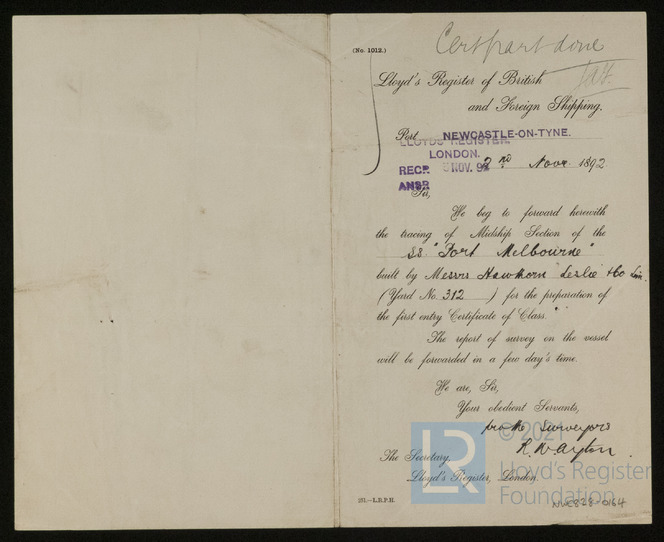 (No. 1012.)
Cert part done
Lloyd's Register of British
and Foreign Shipping.
Port NEWCASTLE-ON-TYNE.
LLOYDS REGISTER.
LONDON.
2nd Novr 1892
RECP. NOV. 92
ANSR
Sir,
We beg to forward herewith
the tracing of Midship Section of the
SS "Port Melbourne"
built by Messrs Hawthorn Leslie & Co Lim.
(Yard No. 312 ) for the preparation of
the first entry "Certificate of Class."
The report of survey on the vessel
will be forwarded in a few day's time.
We are, Sir,
Your obedient Servants,
pro the Surveyors
The Secretary,
Lloyd's Register, London.
© 2021
LR
Lloyd's Register
Foundation
NWE828-0164